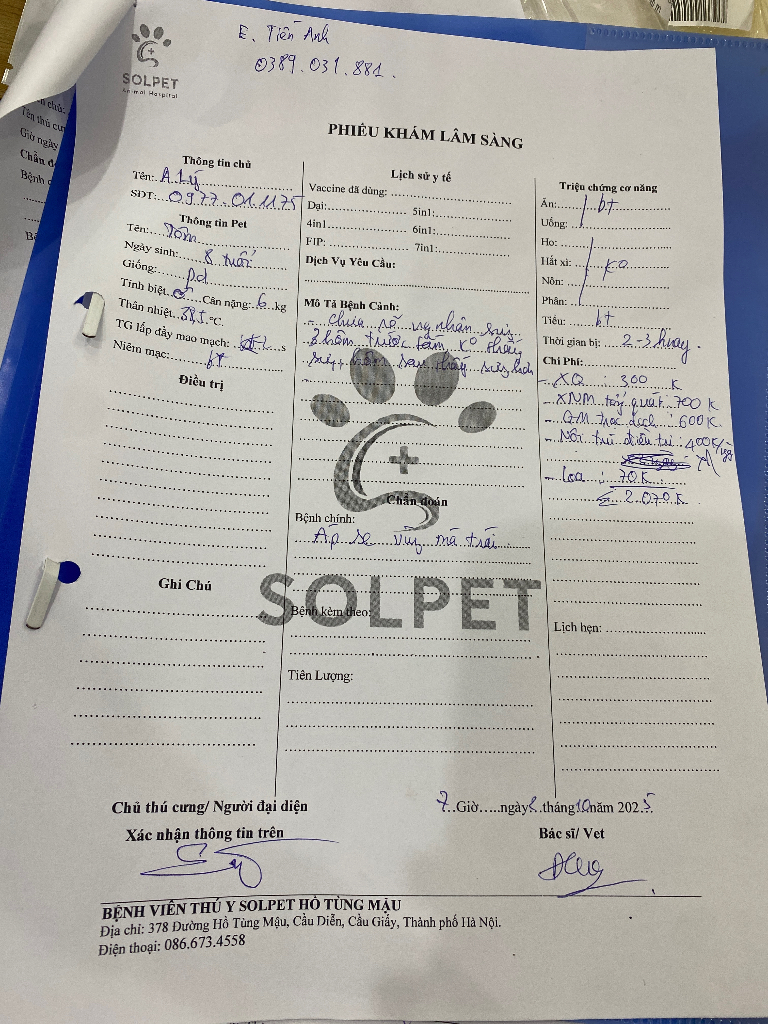 E. Tiến Anh
0389.031.881.
SOLPET
Animal Hospital
PHIẾU KHÁM LÂM SÀNG
Thông tin chủ
Tên: A Lý
SĐT: 0977.01.1175
Thông tin Pet
Tên: Tôm
Ngày sinh: 8 tuổi
Giống: pd
Tính biệt: ♂ Cân nặng: 6 kg
Thân nhiệt: 38,5 °C.
TG lấp đầy mao mạch: s
Niêm mạc: bt
Điều trị
Ghi Chú
Lịch sử y tế
Vaccine đã dùng:
Dại: 5in1:
4in1 6in1:
FIP: 7in1:
Dịch Vụ Yêu Cầu:
Mô Tả Bệnh Cảnh:
- chưa rõ ng nhân sưng
3 hôm trước tắm k° thấy
sưng, hôm sau thấy sưng
Chẩn đoán
Bệnh chính:
Áp se vùng má trái
Bệnh kèm theo:
Tiên Lượng:
Triệu chứng cơ năng
Ăn: bt
Uống:
Ho:
Hắt xì: ko
Nôn:
Phân:
Tiểu: bt
Thời gian bị: 2-3 hnay
Chi Phí:
- XQ : 300 K
- XNM tổng quát 700 K
- GM trọc dịch : 600K
- Nội trú điều trị : 400K/ng
- loa : 70K
2.070K
Lịch hẹn:
Chủ thú cưng/ Người đại diện
Xác nhận thông tin trên
7 Giờ.....ngày 8 tháng 10 năm 2025
Bác sĩ/ Vet
BỆNH VIÊN THÚ Y SOLPET HỒ TÙNG MẬU
Địa chỉ: 378 Đường Hồ Tùng Mậu, Cầu Diễn, Cầu Giấy, Thành phố Hà Nội.
Điện thoại: 086.673.4558